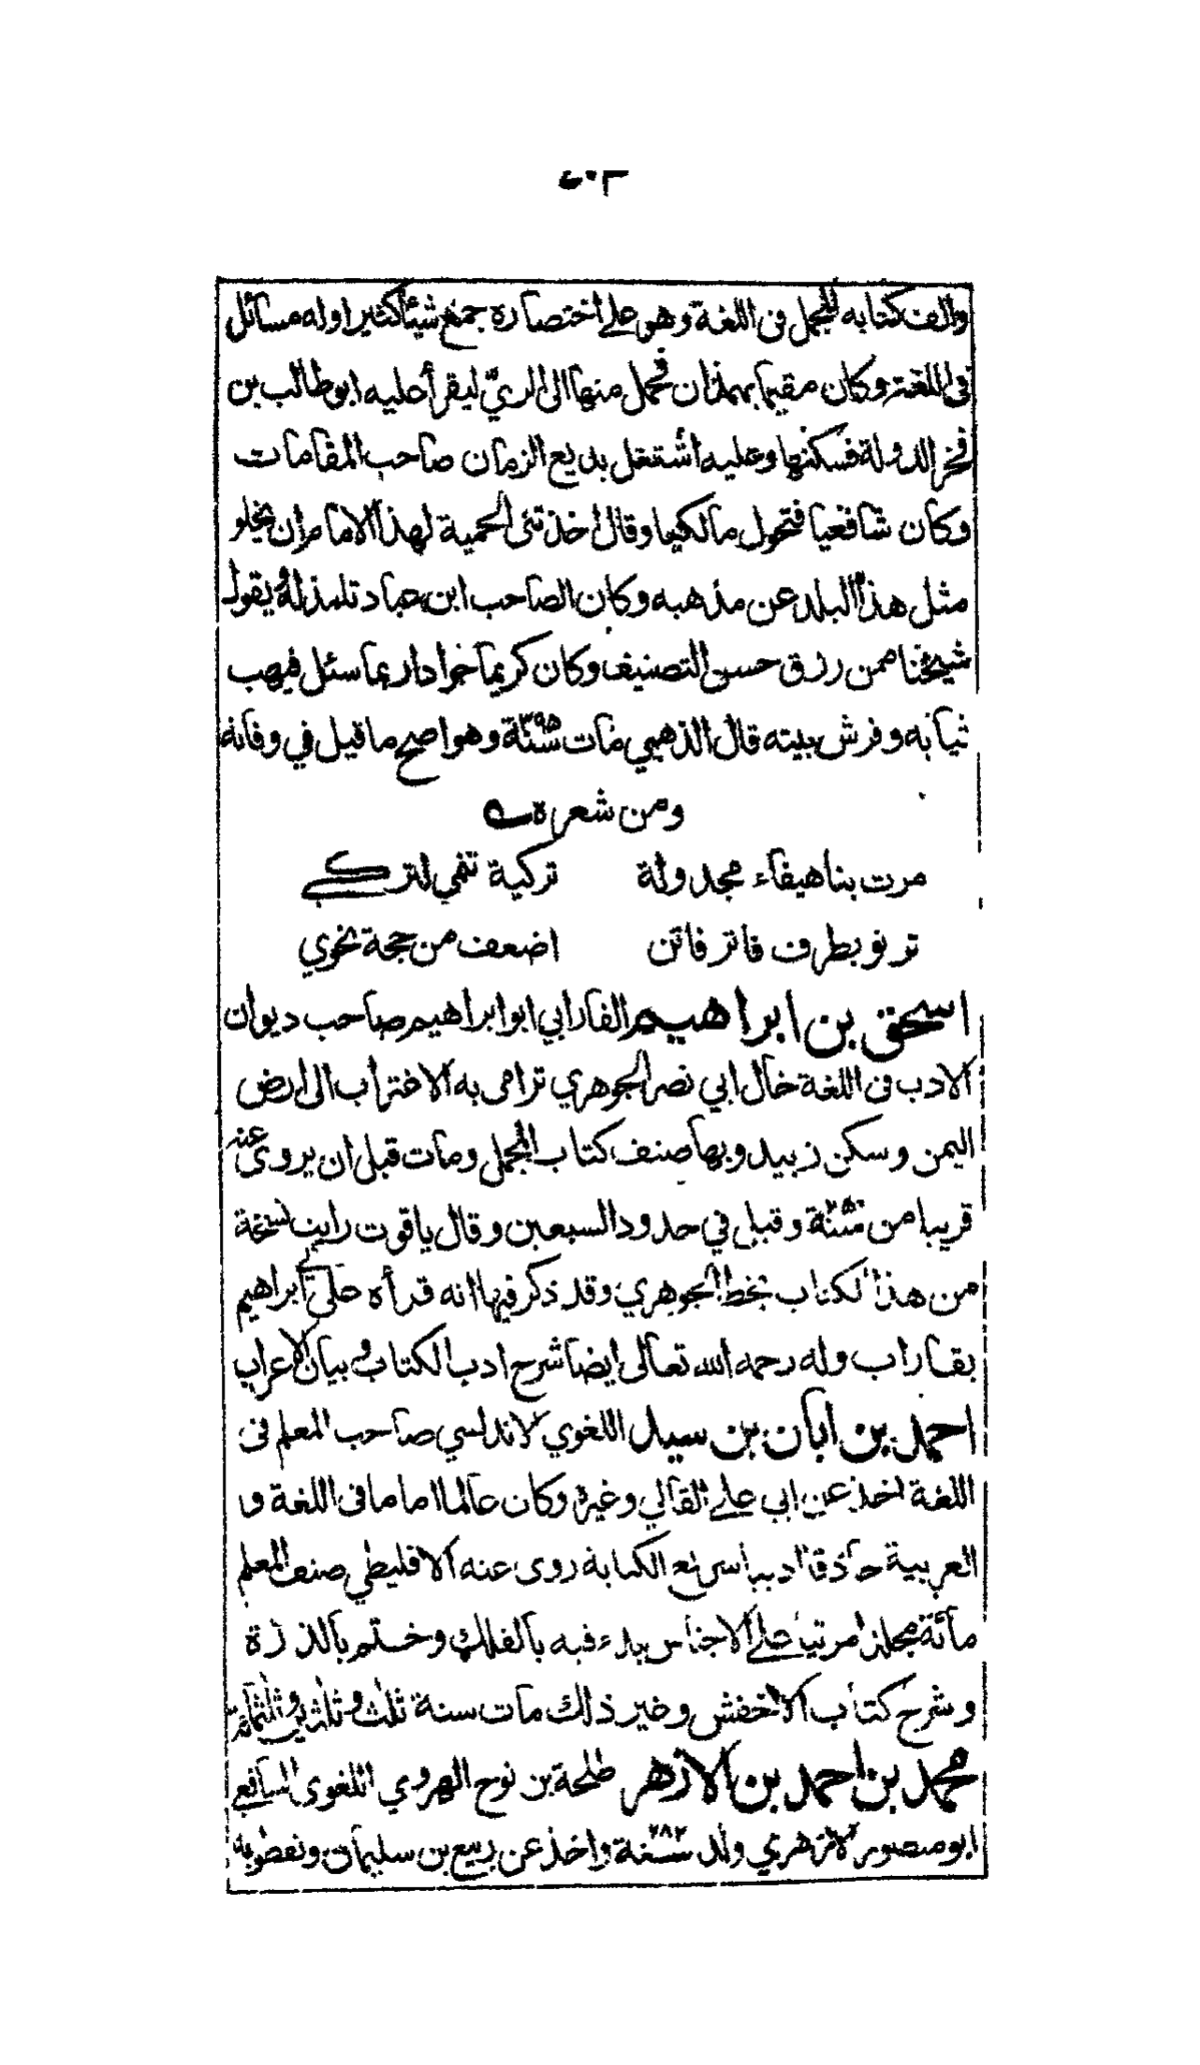 والف كتابه المجمل فى اللغة وهو على اختصاره جمع شيئا كثيرا وله مسائل
فى اللغة وكان مقيما بهمذان فحمل منها الى الريّ ليقرأ عليه ابو طالب بن
فخر الدولة فسكنها وعليه اشتغل بديع الزمان صاحب المقامات
وكان شافعيا فتحول مالكيا وقال اخذتنى الحمية لهذا الامام ان يخلو
مثل هذا البلد عن مذهبه وكان الصاحب ابن عباد تلمذ له ويقول
شيخنا ممن رزق حسن التصنيف وكان كريما جوادا ربما سئل فيهب
ثيابه وفرش بيته قال الذهبي مات سنة ٣٩٥ وهو اصح ما قيل في وفاته
ومن شعره
مرت بنا هيفاء مجدولة تركية تنمي لتركي
ترنو بطرف فاتر فاتن اضعف من حجة نحوي
اسحق بن ابراهيم الفارابي ابو ابراهيم صاحب ديوان
الادب فى اللغة خال ابي نصر الجوهري ترامى به الاغتراب الى ارض
اليمن وسكن زبيد وبها صنف كتاب المجمل ومات قبل ان يروى عنه
قريبا من سنة ٣٥٠ وقيل في حدود السبعين وقال ياقوت رايت نسخة
من هذا الكتاب بخط الجوهري وقد ذكر فيها انه قرأه على ابي ابراهيم
بفاراب وله رحمه الله تعالى ايضا شرح ادب الكتاب و بيان الاعراب
احمد بن ابان بن سيد اللغوي الاندلسي صاحب المعلم فى
اللغة اخذ عن ابى على القالي وغيره وكان عالما اماما فى اللغة و
العربية حاذقا اديبا سريع الكتابة روى عنه الافليطي صنف المعلم
مائة مجلد مرتبا على الاجناس بدء فيه بالفلك وختم بالذرة
وشرح كتاب الاخفش وغير ذلك مات سنة ثلث وثلثين وثلثمائة
محمد بن احمد بن الازهر طلحة بن نوح الهروي اللغوى الشافعي
ابو منصور الازهري ولد سنة ٢٨٢ واخذ عن ربيع بن سليمان ونفطويه